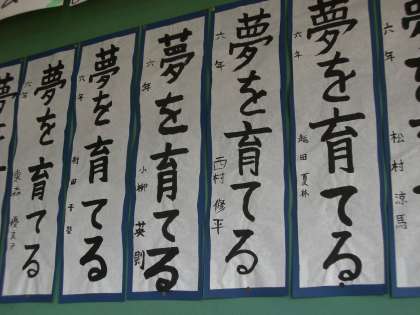 夢を育てる
六年
松村涼馬
夢を育てる
六年
夢を育てる
六年
西村修平
夢を育てる
六年
小柳英則
夢を育てる
六年
夢を育てる
六年
夢を